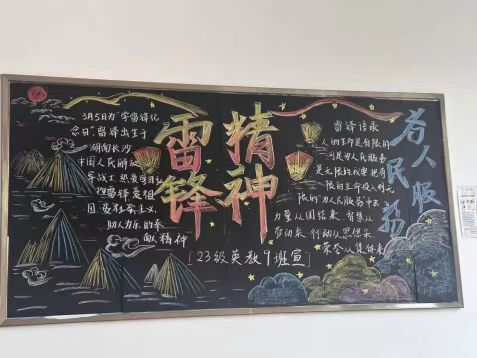 3月5日为"学雷锋纪
念日"雷锋出生于
湖南长沙
中国人民解放
雷锋爱祖
国爱社会主义,
助人为乐的奉
献精神
雷锋
精神
[23级英教9班宣]
雷锋语录
人的生命是有限的
可是为人民服务
是无限的我要把有
限的生命投入到无
限的为人民服务中去
力量从团结来
劳动来,行动从思想来
荣誉从集体来
为人民服务